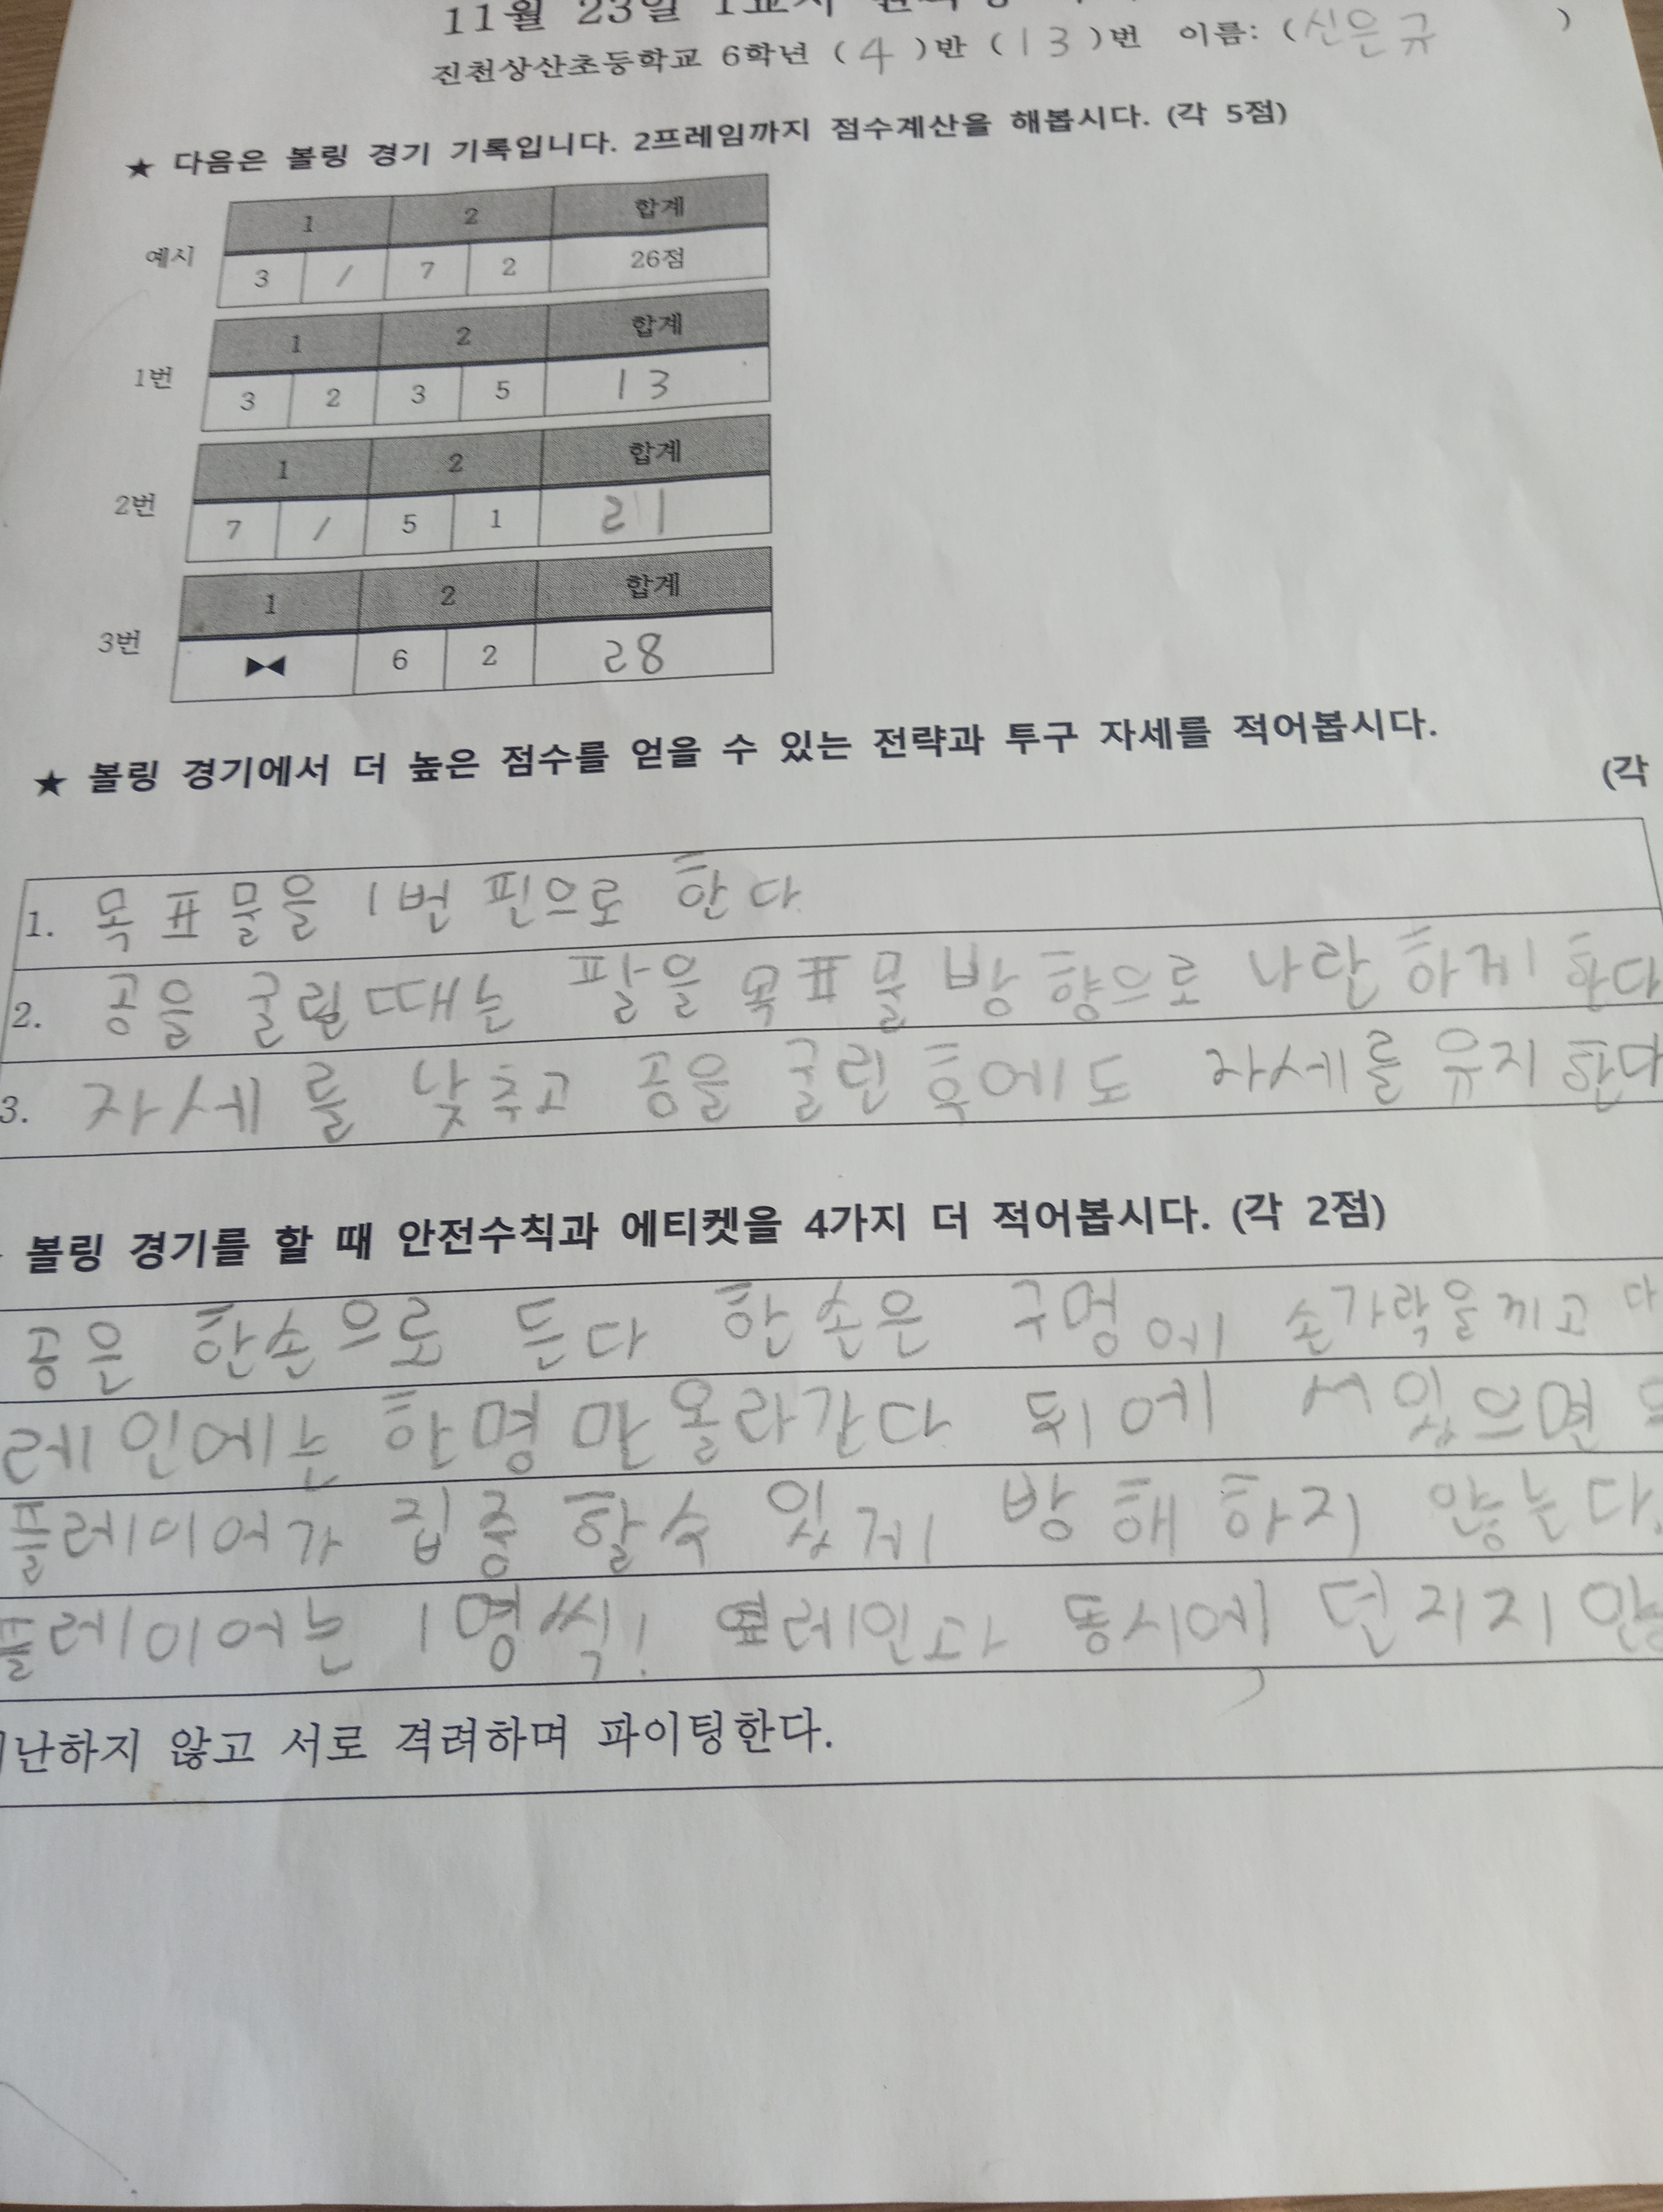 11월 23일 1교시
진천상산초등학교 6학년 ( 4 )반 ( 13 )번 이름: ( 신은규 )
★ 다음은 볼링 경기 기록입니다. 2프레임까지 점수계산을 해봅시다. (각 5점)
1 2 합계
예시 3 / 7 2 26점
1 2 합계
1번 3 2 3 5 13
1 2 합계
2번 7 / 5 1 21
1 2 합계
3번 ▶◀ 6 2 28
★ 볼링 경기에서 더 높은 점수를 얻을 수 있는 전략과 투구 자세를 적어봅시다.
(각
1. 목표물을 1번 핀으로 한다
2. 공을 굴릴때는 팔을 목표물 방향으로 나란하게 한다
3. 자세를 낮추고 공을 굴린 후에도 자세를 유지한다
볼링 경기를 할 때 안전수칙과 에티켓을 4가지 더 적어봅시다. (각 2점)
공은 한손으로 든다 한손은 구멍에 손가락을 끼고 다
레인에는 한명만 올라간다 뒤에 서있으면
플레이어가 집중 할수 있게 방해하지 않는다.
플레이어는 1명씩! 옆레인과 동시에 던지지 않
난하지 않고 서로 격려하며 파이팅한다.